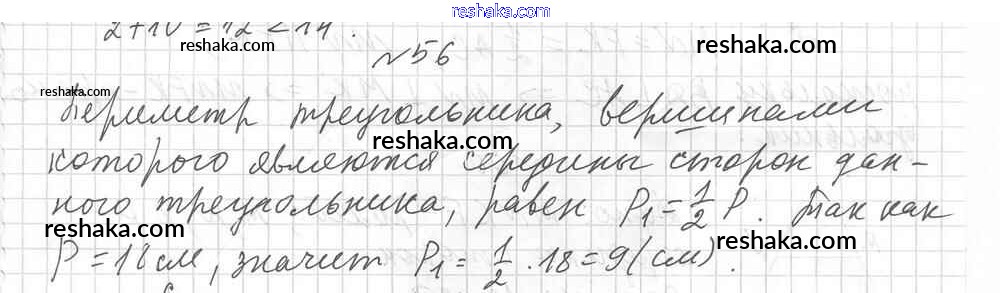 reshaka.com
2+10=12<14.
reshaka.com
reshaka.com
№56
reshaka.com
Периметр треугольника, вершинами
reshaka.com
которого являются середины сторон дан-
reshaka.com
ного треугольника, равен P₁=1/2 P. Так как
reshaka.com
reshaka.com
P=18см, значит P₁=1/2·18=9(см).